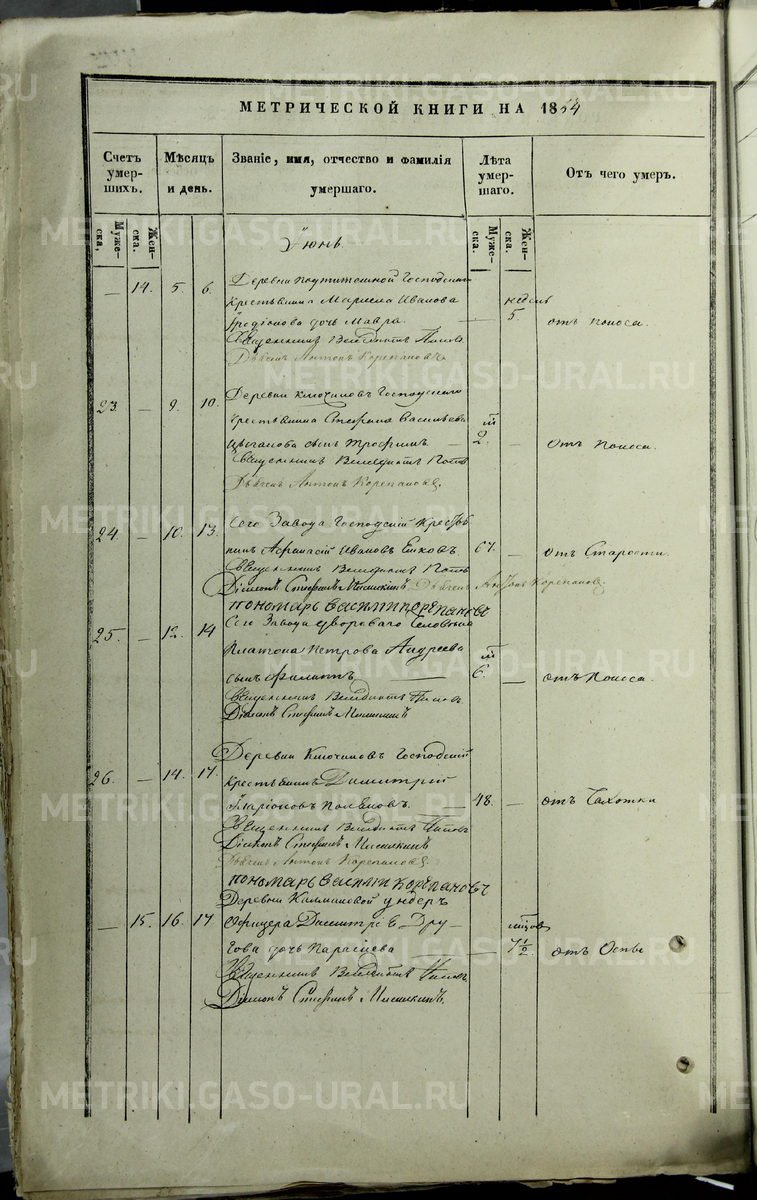 МЕТРИЧЕСКОЙ КНИГИ НА 1854
Счетъ умершихъ.
Мѣсяцъ и день.
Званіе, имя, отчество и фамилія умершаго.
Лѣта умершаго.
Отъ чего умеръ.
Мужеска.
Женска.
Мужеска.
Женска.
Іюнь.
— 14. 5. 6. Деревни Господскаго
крестьянина Иванова недель
дочь Мавра. 5. отъ поноса.
Священникъ Венедиктъ Поповъ
Дьячекъ Антонъ Корепановъ.
23. — 9. 10. Деревни Ключиковъ Господскаго
крестьянина Стефана Васильева
Цыганова сынъ Трофимъ — 2. — отъ поноса.
Священникъ Венедиктъ Поповъ
Дьячекъ Антонъ Корепановъ.
24. — 10. 13. Сего Завода Господскій Кресть
нинъ Афанасій Ивановъ 67. — отъ Старости.
Священникъ Венедиктъ Поповъ
Діаконъ Стефанъ Мишкинъ Дьячекъ Антонъ Корепановъ
пономарь Василій Корепановъ
25. — 12. 14 Сего Завода двороваго
Платона Петрова Андреева
сынъ Филиппъ — 6. — отъ Поноса.
Священникъ Венедиктъ Поповъ
Діаконъ Стефанъ Мишкинъ
26. — 14. 17. Деревни Ключиковъ Господскій
крестьянинъ Димитрій
Иларіоновъ — 48. — отъ Чахотки
Священникъ Венедиктъ Поповъ
Діаконъ Стефанъ Мишкинъ
Дьячекъ Антонъ Корепановъ
пономарь Василій Корепановъ
— 15. 16. 17. Деревни ундеръ
Офицера
дочь — 7 1/2. отъ Оспы
Священникъ Венедиктъ Поповъ
Діаконъ Стефанъ Мишкинъ.
METRIKI.GASO-URAL.RU